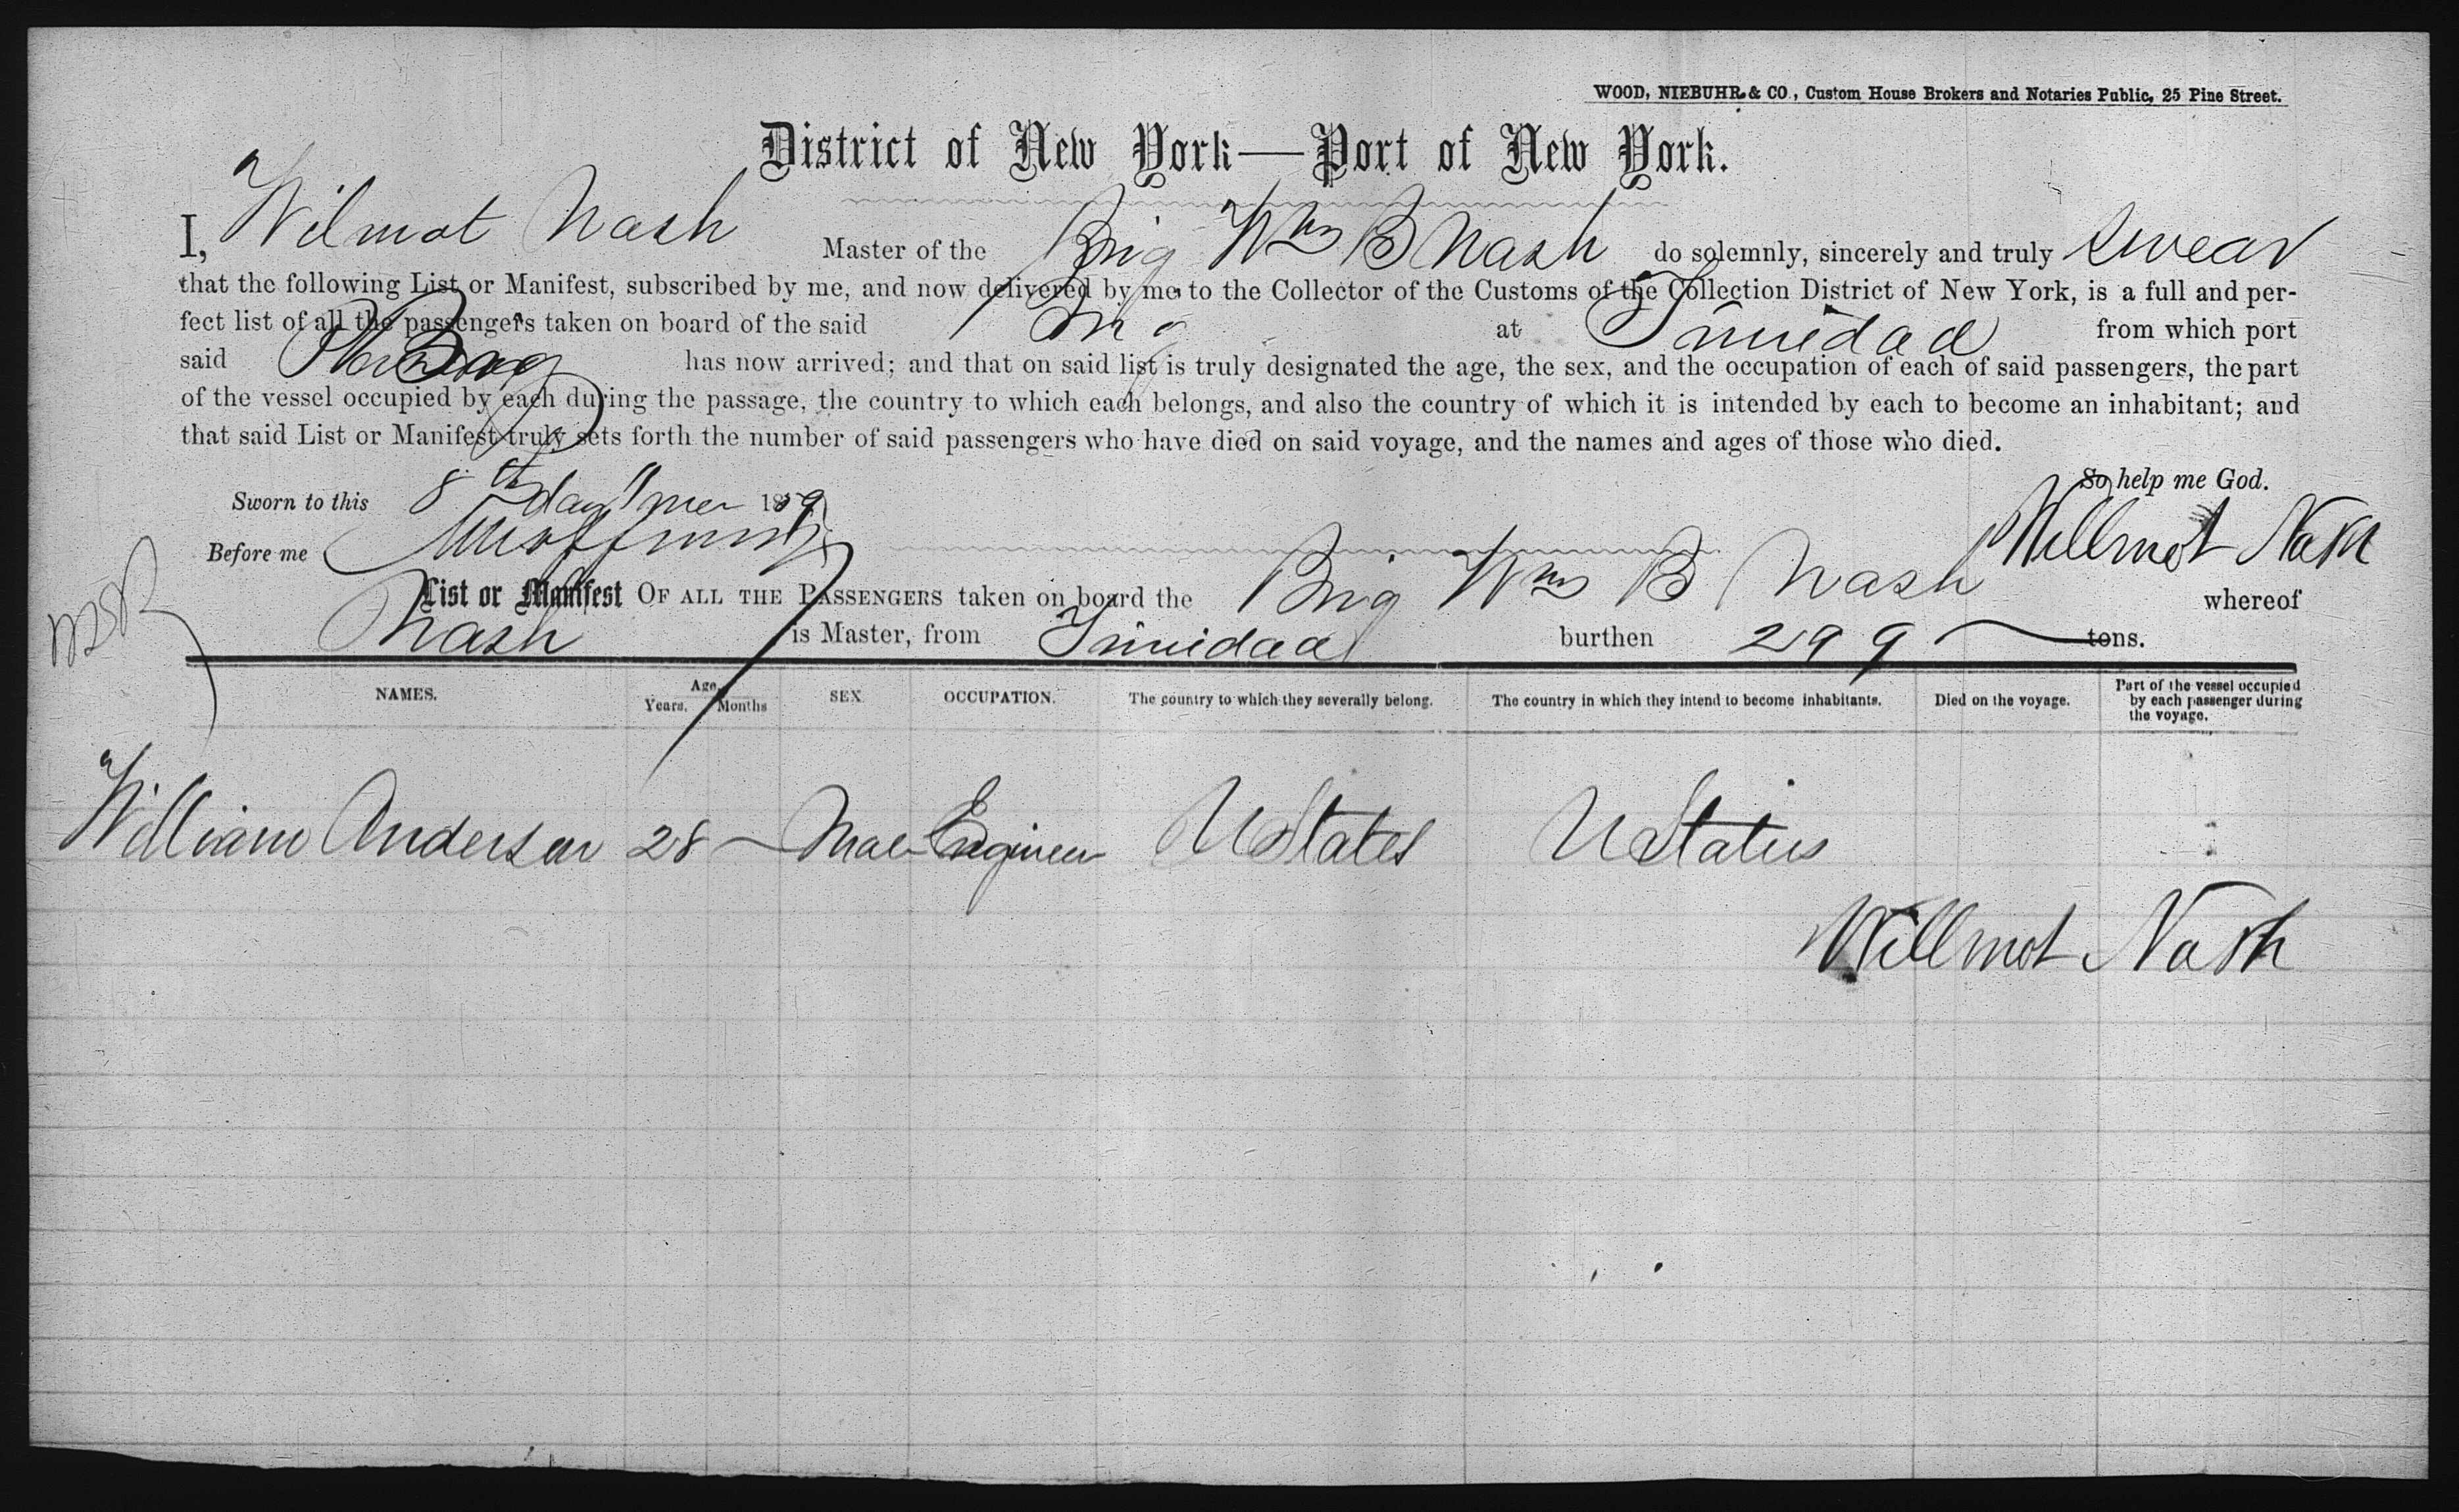 WOOD, NIEBUHR & CO., Custom House Brokers and Notaries Public, 25 Pine Street.
District of New York—Port of New York.
I, Wilmot Nash Master of the Brig Wm B Nash do solemnly, sincerely and truly swear
that the following List or Manifest, subscribed by me, and now delivered by me to the Collector of the Customs of the Collection District of New York, is a full and per-
fect list of all the passengers taken on board of the said Brig at Trinidad from which port
said Brig has now arrived; and that on said list is truly designated the age, the sex, and the occupation of each of said passengers, the part
of the vessel occupied by each during the passage, the country to which each belongs, and also the country of which it is intended by each to become an inhabitant; and
that said List or Manifest truly sets forth the number of said passengers who have died on said voyage, and the names and ages of those who died.
So help me God.
Sworn to this 8th day 1859
Willmot Nash
Before me
List or Manifest OF ALL THE PASSENGERS taken on board the Brig Wm B Nash whereof
Nash is Master, from Trinidad burthen 299 tons.
NAMES. Age. Years. Months SEX. OCCUPATION. The country to which they severally belong. The country in which they intend to become inhabitants. Died on the voyage. Part of the vessel occupied by each passenger during the voyage.
William Anderson 28 Male Engineer U States U States
Willmot Nash